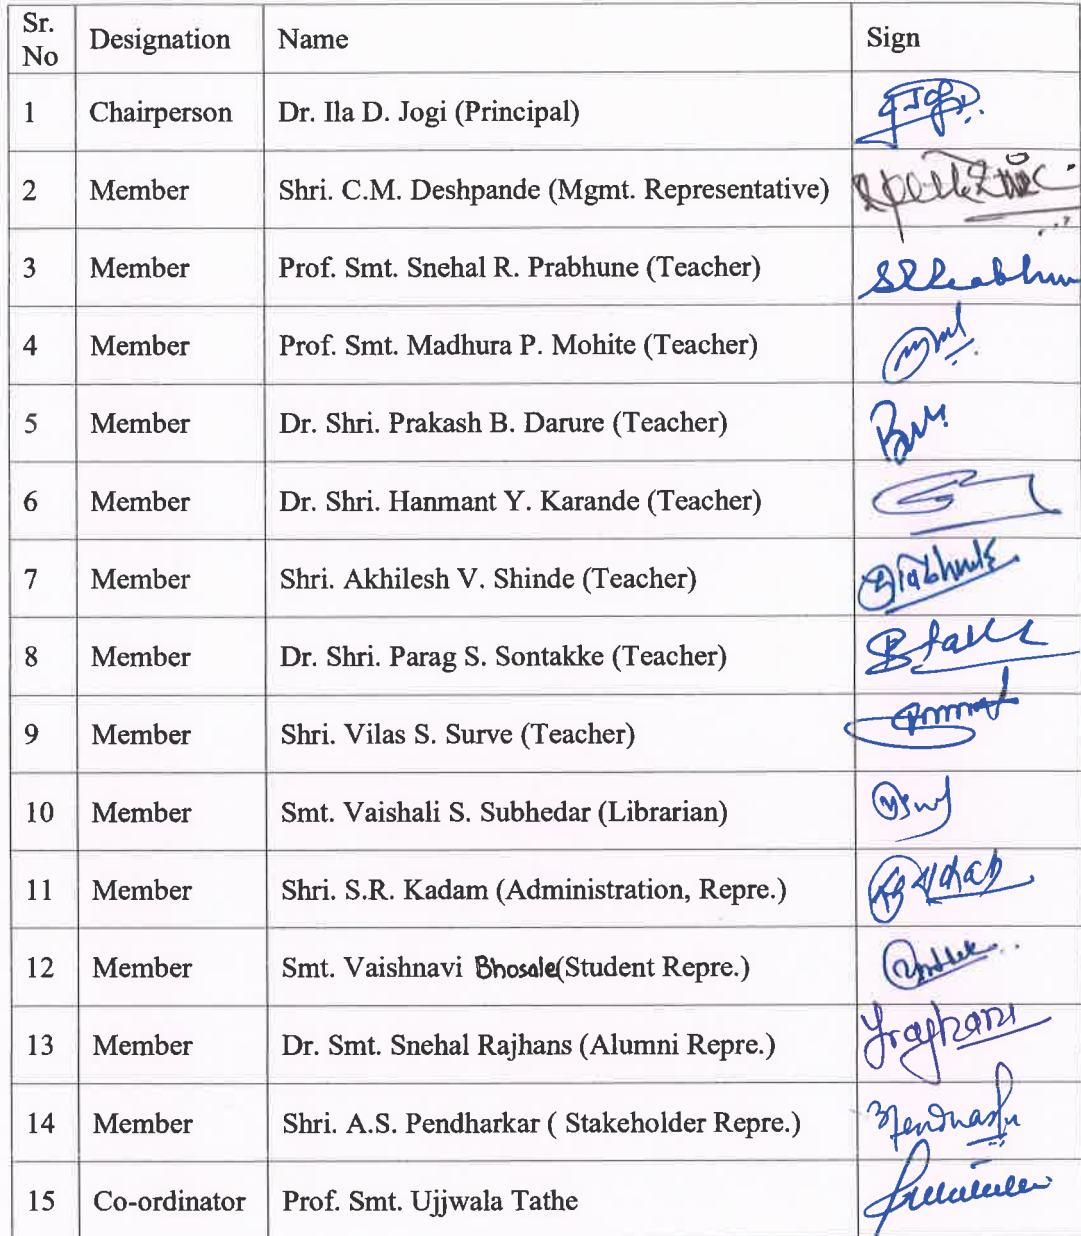 Sr. No Designation Name Sign
1 Chairperson Dr. Ila D. Jogi (Principal)
2 Member Shri. C.M. Deshpande (Mgmt. Representative)
3 Member Prof. Smt. Snehal R. Prabhune (Teacher)
4 Member Prof. Smt. Madhura P. Mohite (Teacher)
5 Member Dr. Shri. Prakash B. Darure (Teacher)
6 Member Dr. Shri. Hanmant Y. Karande (Teacher)
7 Member Shri. Akhilesh V. Shinde (Teacher)
8 Member Dr. Shri. Parag S. Sontakke (Teacher)
9 Member Shri. Vilas S. Surve (Teacher)
10 Member Smt. Vaishali S. Subhedar (Librarian)
11 Member Shri. S.R. Kadam (Administration, Repre.)
12 Member Smt. Vaishnavi Bhosale(Student Repre.)
13 Member Dr. Smt. Snehal Rajhans (Alumni Repre.)
14 Member Shri. A.S. Pendharkar ( Stakeholder Repre.)
15 Co-ordinator Prof. Smt. Ujjwala Tathe